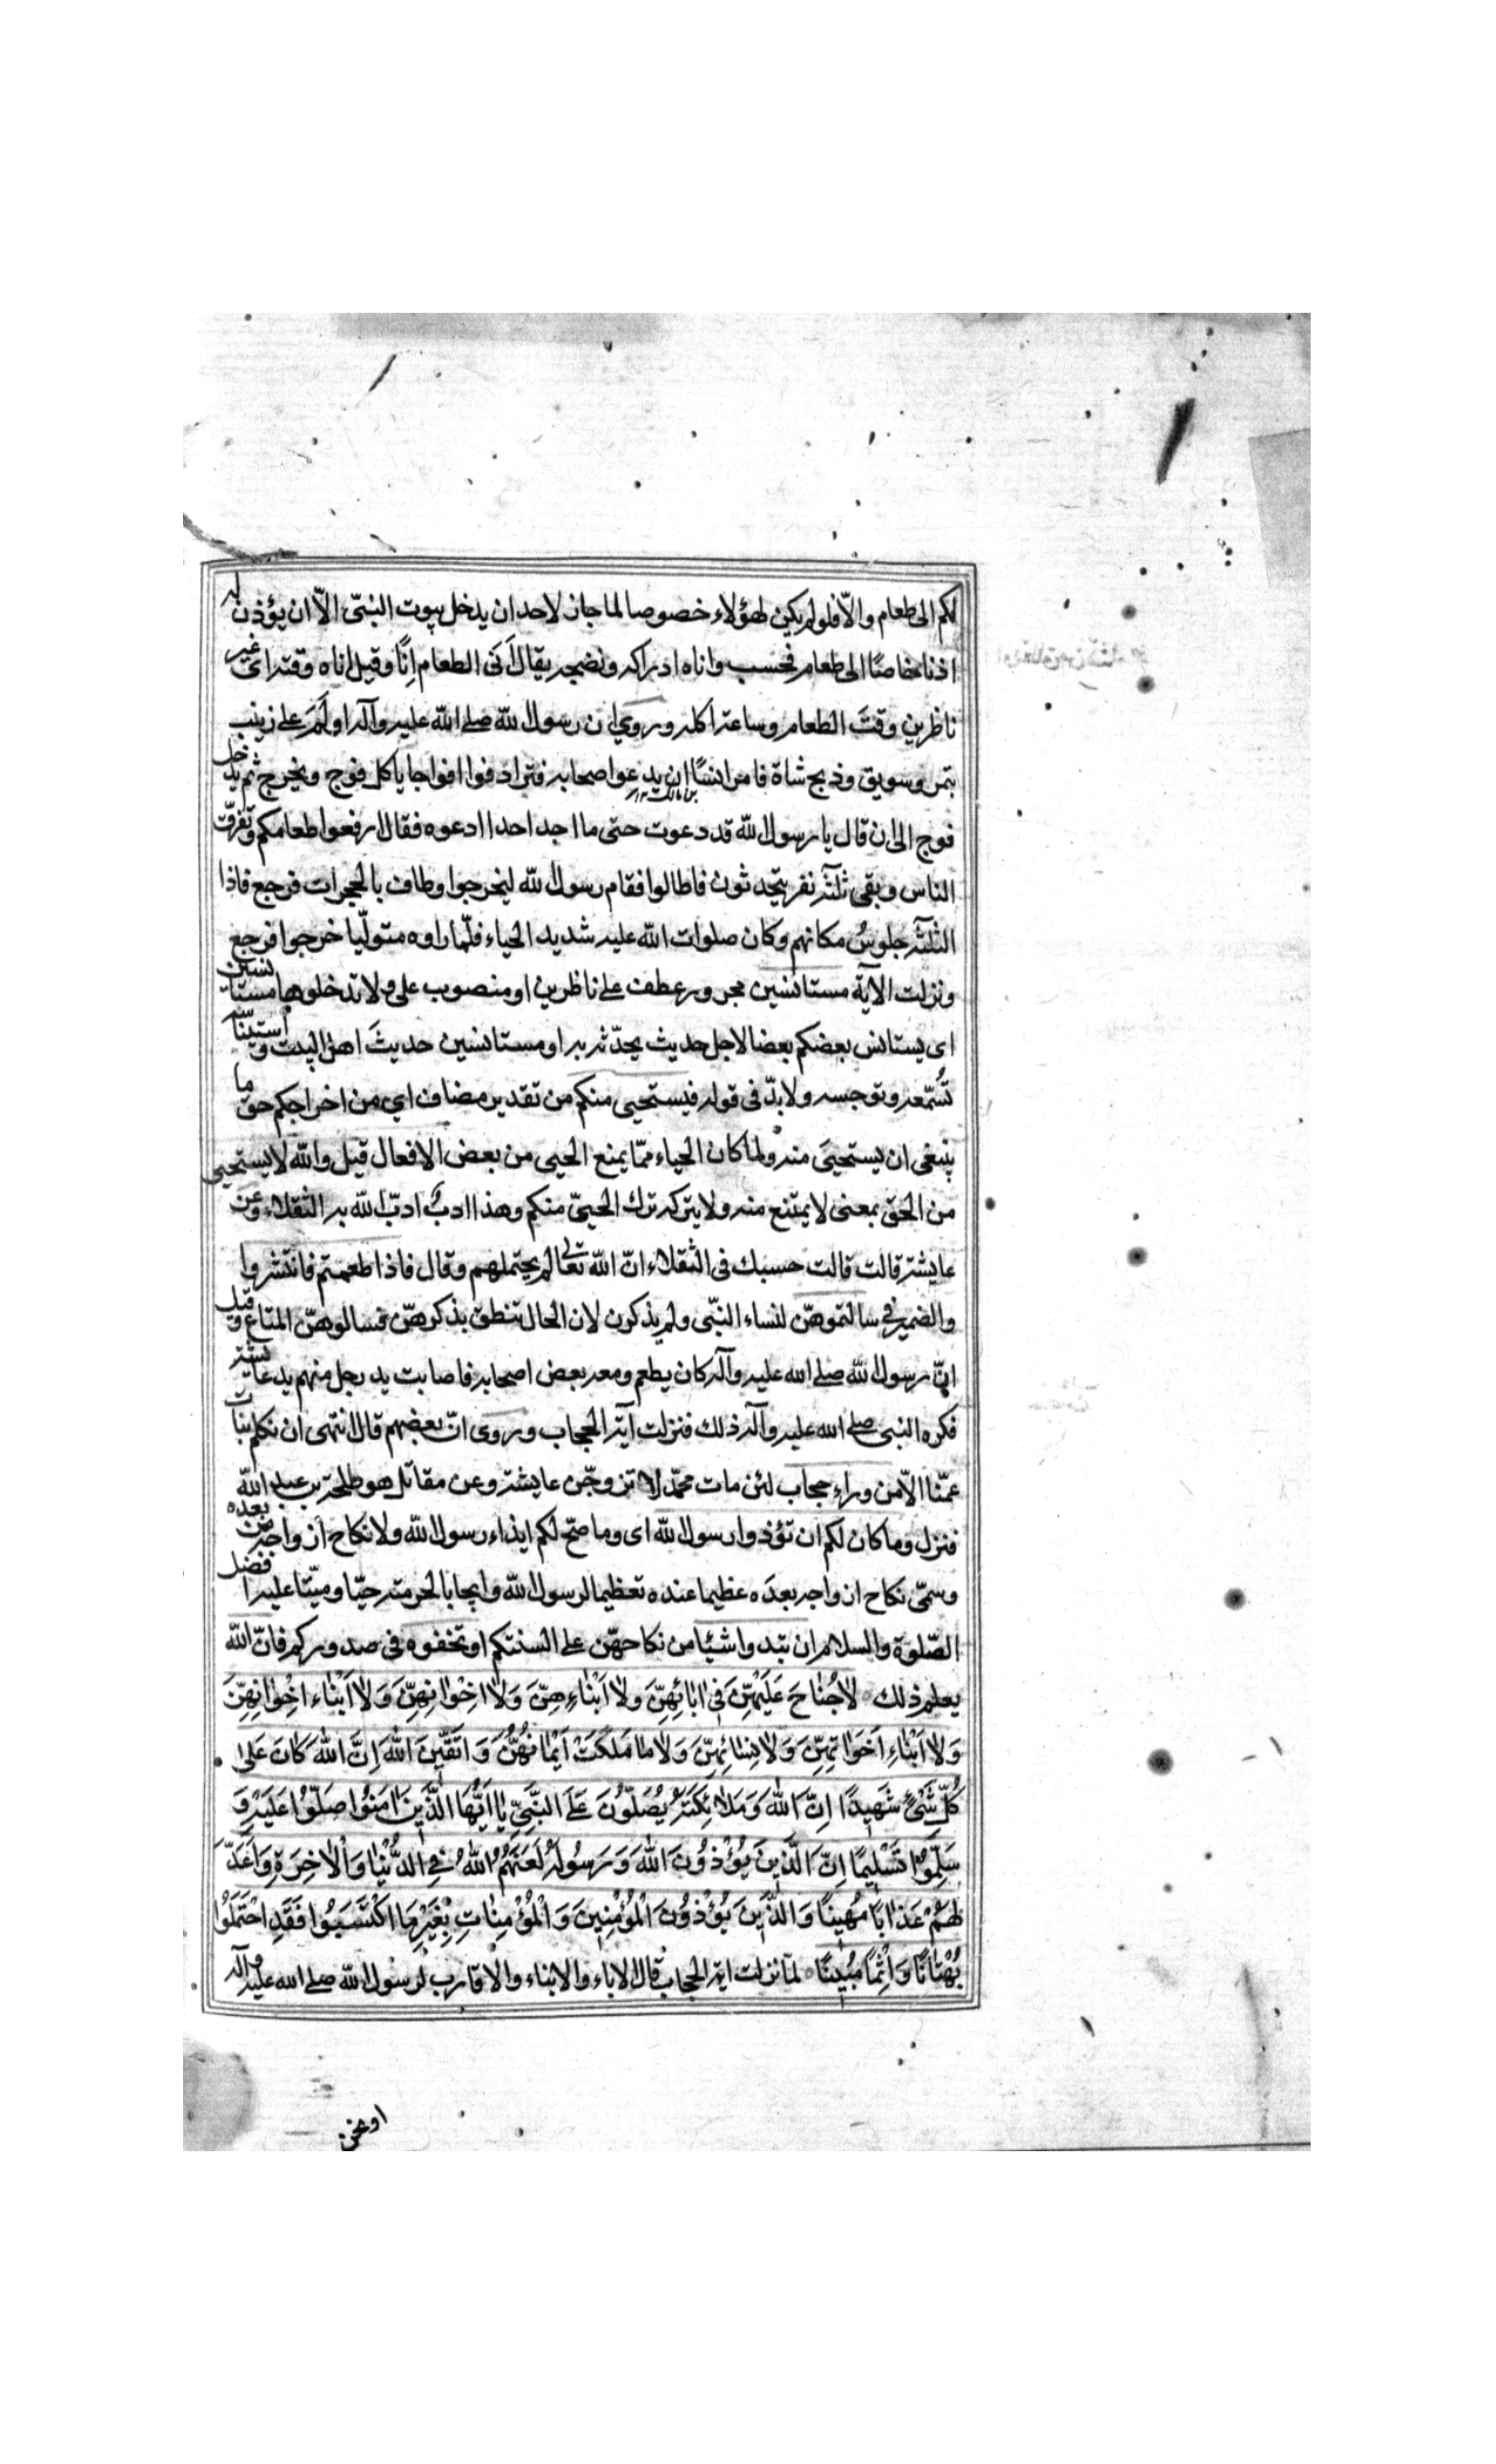 لكم الى طعام والّا فلو لم يكن لهؤلاء خصوصا لما جاز لاحد ان يدخل بيوت النبىّ الّا ان يؤذن له
اذنا خاصّا الى طعام فحسب واناه ادراكه ونضجه يقال اَنَى الطعام اِنًا وقيل اناه وقته اى غير
ناظرين وقتَ الطعام وساعة اكله وروي ان رسول الله صلے الله عليه وآله اولَمَ علے زينب
بتمر وسويق وذبح شاة فامر انسًا ان يدعوا اصحابه فترادفوا افواجا ياكل فوج ويخرج ثم يدخل
بن مالك
فوج الى ان قال يا رسول الله قد دعوت حتى ما اجد احدا ادعوه فقال ارفعوا طعامكم وتفرّق
الناس وبقى ثلثة نفر يتحدثون فاطالوا فقام رسول الله ليخرجوا وطاف بالحجرات فرجع فاذا
الثلثة جلوسٌ مكانهم وكان صلوات الله عليه شديد الحياء فلمّا راوه متولّيا خرجوا فرجع
ونزلت الآية مستانسين مجرور عطف علے ناظرين او منصوب على ولا تدخلوها مستانسين
اى يستانس بعضكم بعضا لاجل حديث يحدّثه به او مستانسين حديثَ اهل البيت واستيناسه
تسُّمّعه وتوجسه ولا بدّ فى قوله فيستحيى منكم من تقدير مضاف اي من اخراجكم حقّ ما
ينبغى ان يستحيىَ منه ولما كان الحياء ممّا يمنع الحيى من بعض الافعال قيل والله لا يستحيى
من الحق بمعنى لا يمتنع منه ولا يتركه ترك الحييّ منكم وهذا ادبٌ ادبّ الله به الثقلاء وعن
عايشة قالت قالت حسبك فى الثقلاء انّ الله تعالى لم يحتملهم وقال فاذا طعمتم فانتشروا
والضمير فى سالتموهنّ لنساء النبّى ولم يذكرن لان الحال تنطق بذكرهنّ فسالوهنّ المتاع وقيل
انّ رسول الله صلے الله عليه وآله كان يطعم ومعه بعض اصحابه فاصابت يد رجل منهم يد عايشة
فكره النبى صلے الله عليه وآله ذلك فنزلت آية الحجاب وروى انّ بعضهم قال اننهى ان نكلم بنات
عمّنا الّا من وراء حجاب لئن مات محمّد لاتزوجّن عايشة وعن مقاتل هو طلحة بن عبيد الله
فنزل وما كان لكم ان تؤذوا رسول الله اى وما صحّ لكم ايذاء رسول الله ولا نكاح ازواجه من بعده
وسمّى نكاح ازواجه بعدَه عظيما عنده تعظيما لرسول الله وايجابا لحرمته حيّا وميّتا عليه افضل
الصّلوة والسلام ان تبدوا شيئا من نكاحهنّ علے السنتكم او تخفوه فى صدوركم فانّ الله
يعلم ذلك لاٰجُنٰاحَ عَلَيْهِنَّ فٖى اٰبٰائِهِنَّ وَلاٰ اَبْنٰاءِهِنَّ وَلاٰ اِخْوٰانِهِنَّ وَلاٰ اَبْنٰاءِ اِخْوٰانِهِنَّ
وَلاٰ اَبْنٰاءِ اَخَوٰاتِهِنَّ وَلاٰ نِسٰائِهِنَّ وَلاٰ مٰا مَلَكَتْ اَيْمٰانُهُنَّ وَ اتَّقٖينَ اللهَ اِنَّ اللهَ كٰانَ عَلىٰ
كُلِّ شَىْءٍ شَهٖيدًا اِنَّ اللهَ وَ مَلاٰئِكَتَهُ يُصَلُّونَ عَلَى النَّبِىِّ يٰا اَيُّهَا الَّذٖينَ اٰمَنُوا صَلُّوا عَلَيْهِ وَ
سَلِّمُوا تَسْلٖيمًا اِنَّ الَّذٖينَ يُؤْذُونَ اللهَ وَ رَسُولَهُ لَعَنَهُمُ اللهُ فِى الدُّنْيٰا وَ الْاٰخِرَةِ وَ اَعَدَّ
لَهُمْ عَذٰابًا مُهٖينًا وَ الَّذٖينَ يُؤْذُونَ الْمُؤْمِنٖينَ وَ الْمُؤْمِنٰاتِ بِغَيْرِ مَا اكْتَسَبُوا فَقَدِ احْتَمَلُوا
بُهْتٰانًا وَ اِثْمًا مُبٖينًا لمّا نزلت اية الحجاب قال الاباء والابناء والاقارب لرسول الله صلے الله عليه وآله
او نحن